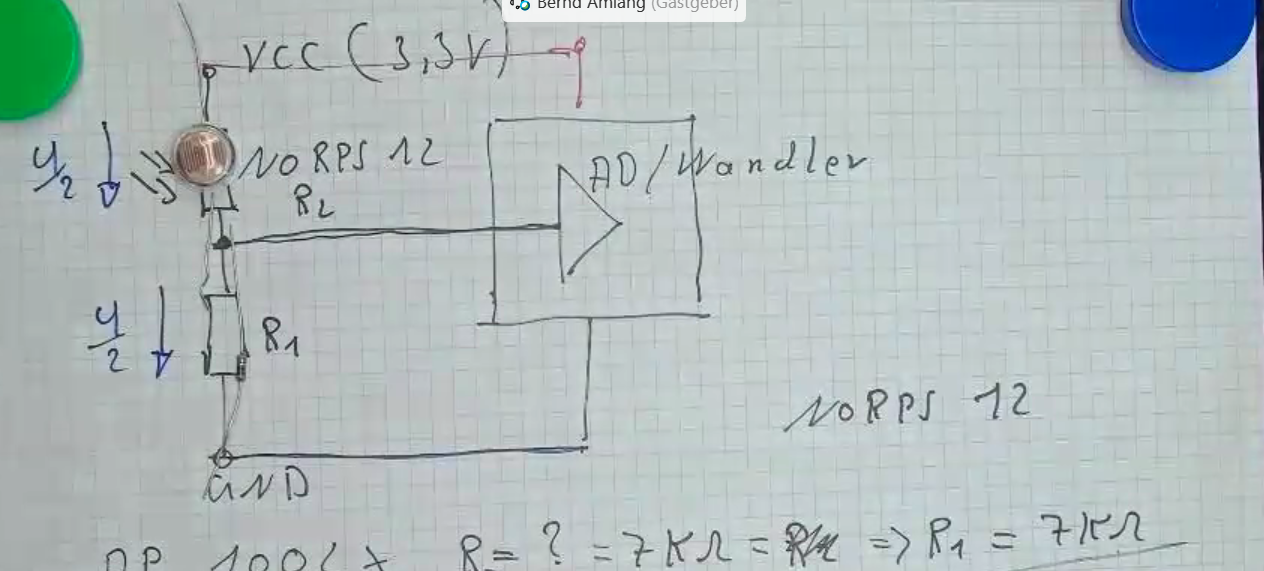 Bernd Amlang (Gastgeber)
VCC (3,3V)
U/2
NORPS 12
AD/Wandler
R2
U/2
R1
NORPS 12
GND
100 lx R = ? = 7KΩ = => R1 = 7KΩ